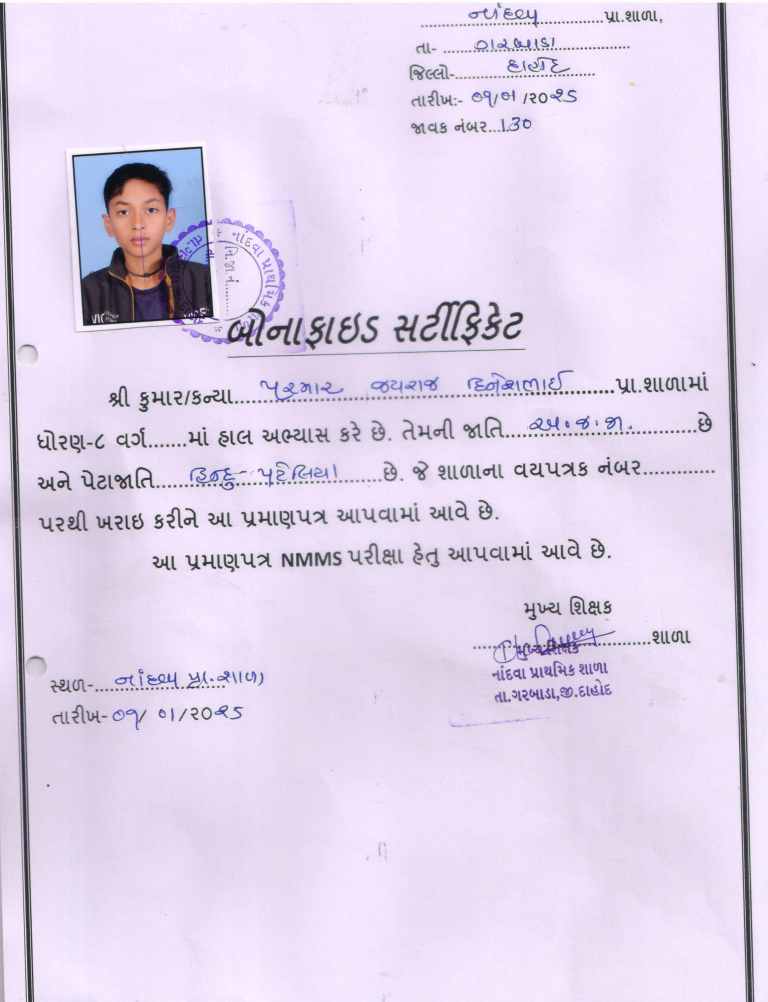 નાંદવા પ્રા.શાળા,
તા- ગરબાડા
જિલ્લો- દાહોદ
તારીખ:- ૦૧/૦૧/૨૦૨૫
જાવક નંબર...130
નાંદવા પ્રાથમિક
બોનાફાઇડ સર્ટીફિકેટ
શ્રી કુમાર/કન્યા...પરમાર જયરાજ દિનેશભાઈ...પ્રા.શાળામાં
ધોરણ-૮ વર્ગ.......માં હાલ અભ્યાસ કરે છે. તેમની જાતિ...અ.જ.જા....છે
અને પેટાજાતિ...હિન્દુ-પટેલિયા...છે. જે શાળાના વયપત્રક નંબર.............
પરથી ખરાઇ કરીને આ પ્રમાણપત્ર આપવામાં આવે છે.
આ પ્રમાણપત્ર NMMS પરીક્ષા હેતુ આપવામાં આવે છે.
મુખ્ય શિક્ષક
...શાળા
મુખ્ય શિક્ષક
નાંદવા પ્રાથમિક શાળા
તા.ગરબાડા,જી.દાહોદ
સ્થળ-..નાંદવા પ્રા.શાળા
તારીખ-૦૧/૦૧/૨૦૨૫